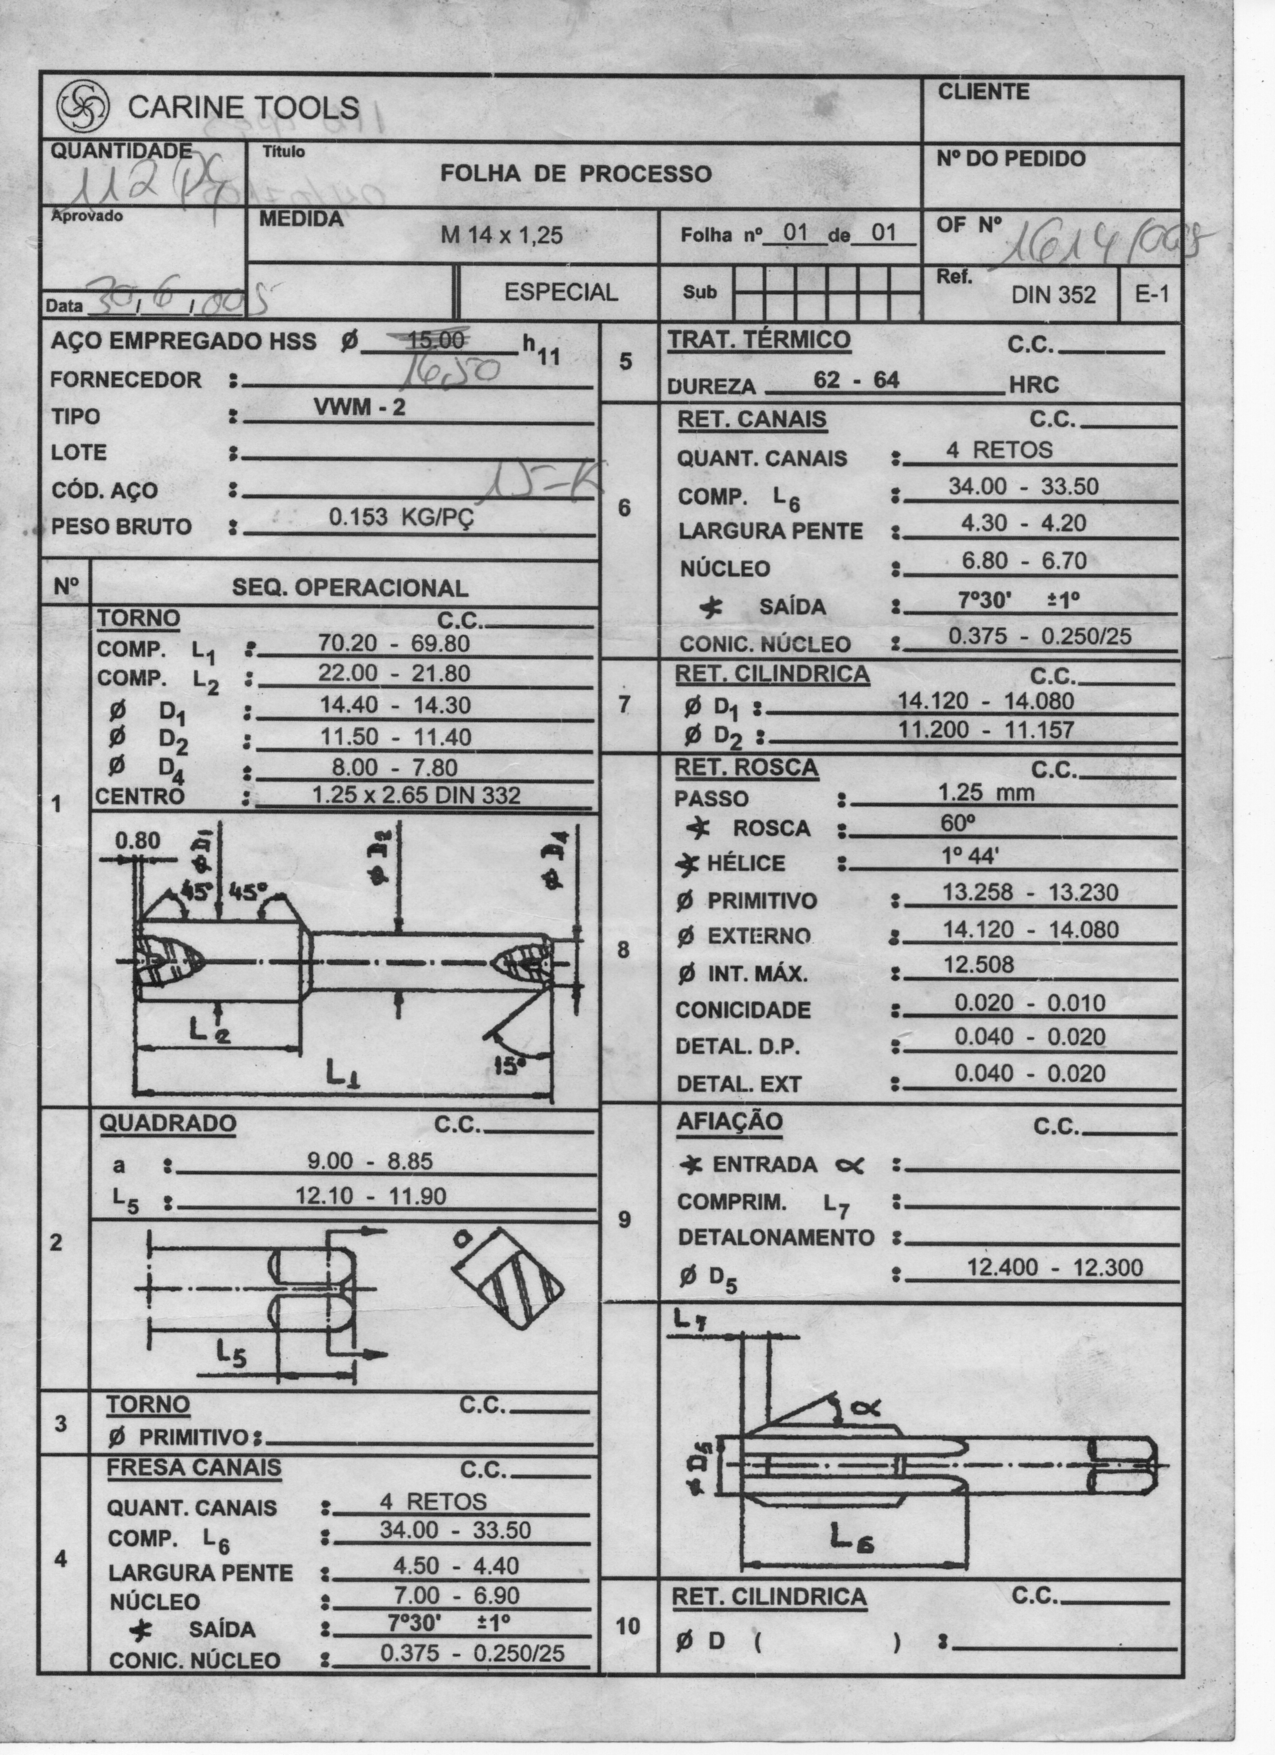 CARINE TOOLS
CLIENTE
QUANTIDADE
112 PÇ
Título
FOLHA DE PROCESSO
Nº DO PEDIDO
Aprovado
MEDIDA
M 14 x 1,25
Folha nº 01 de 01
OF Nº 1614/005
Data 30/6/005
ESPECIAL
Sub
Ref.
DIN 352
E-1
AÇO EMPREGADO HSS Ø 15.00 h11
16,50
FORNECEDOR :
TIPO : VWM - 2
LOTE :
CÓD. AÇO : 15-K
PESO BRUTO : 0.153 KG/PÇ
Nº
SEQ. OPERACIONAL
1
TORNO C.C.
COMP. L1 : 70.20 - 69.80
COMP. L2 : 22.00 - 21.80
Ø D1 : 14.40 - 14.30
Ø D2 : 11.50 - 11.40
Ø D4 : 8.00 - 7.80
CENTRO : 1.25 x 2.65 DIN 332
0.80
Ø D1
Ø D2
Ø D4
45° 45°
L2
15°
L1
2
QUADRADO C.C.
a : 9.00 - 8.85
L5 : 12.10 - 11.90
a
L5
3
TORNO C.C.
Ø PRIMITIVO :
4
FRESA CANAIS C.C.
QUANT. CANAIS : 4 RETOS
COMP. L6 : 34.00 - 33.50
LARGURA PENTE : 4.50 - 4.40
NÚCLEO : 7.00 - 6.90
SAÍDA : 7º30' ±1º
CONIC. NÚCLEO : 0.375 - 0.250/25
5
TRAT. TÉRMICO C.C.
DUREZA 62 - 64 HRC
6
RET. CANAIS C.C.
QUANT. CANAIS : 4 RETOS
COMP. L6 : 34.00 - 33.50
LARGURA PENTE : 4.30 - 4.20
NÚCLEO : 6.80 - 6.70
SAÍDA : 7º30' ±1º
CONIC. NÚCLEO : 0.375 - 0.250/25
7
RET. CILINDRICA C.C.
Ø D1 : 14.120 - 14.080
Ø D2 : 11.200 - 11.157
8
RET. ROSCA C.C.
PASSO : 1.25 mm
ROSCA : 60º
HÉLICE : 1º 44'
Ø PRIMITIVO : 13.258 - 13.230
Ø EXTERNO : 14.120 - 14.080
Ø INT. MÁX. : 12.508
CONICIDADE : 0.020 - 0.010
DETAL. D.P. : 0.040 - 0.020
DETAL. EXT : 0.040 - 0.020
9
AFIAÇÃO C.C.
ENTRADA α :
COMPRIM. L7 :
DETALONAMENTO :
Ø D5 : 12.400 - 12.300
L7
α
Ø D5
L6
10
RET. CILINDRICA C.C.
Ø D ( ) :